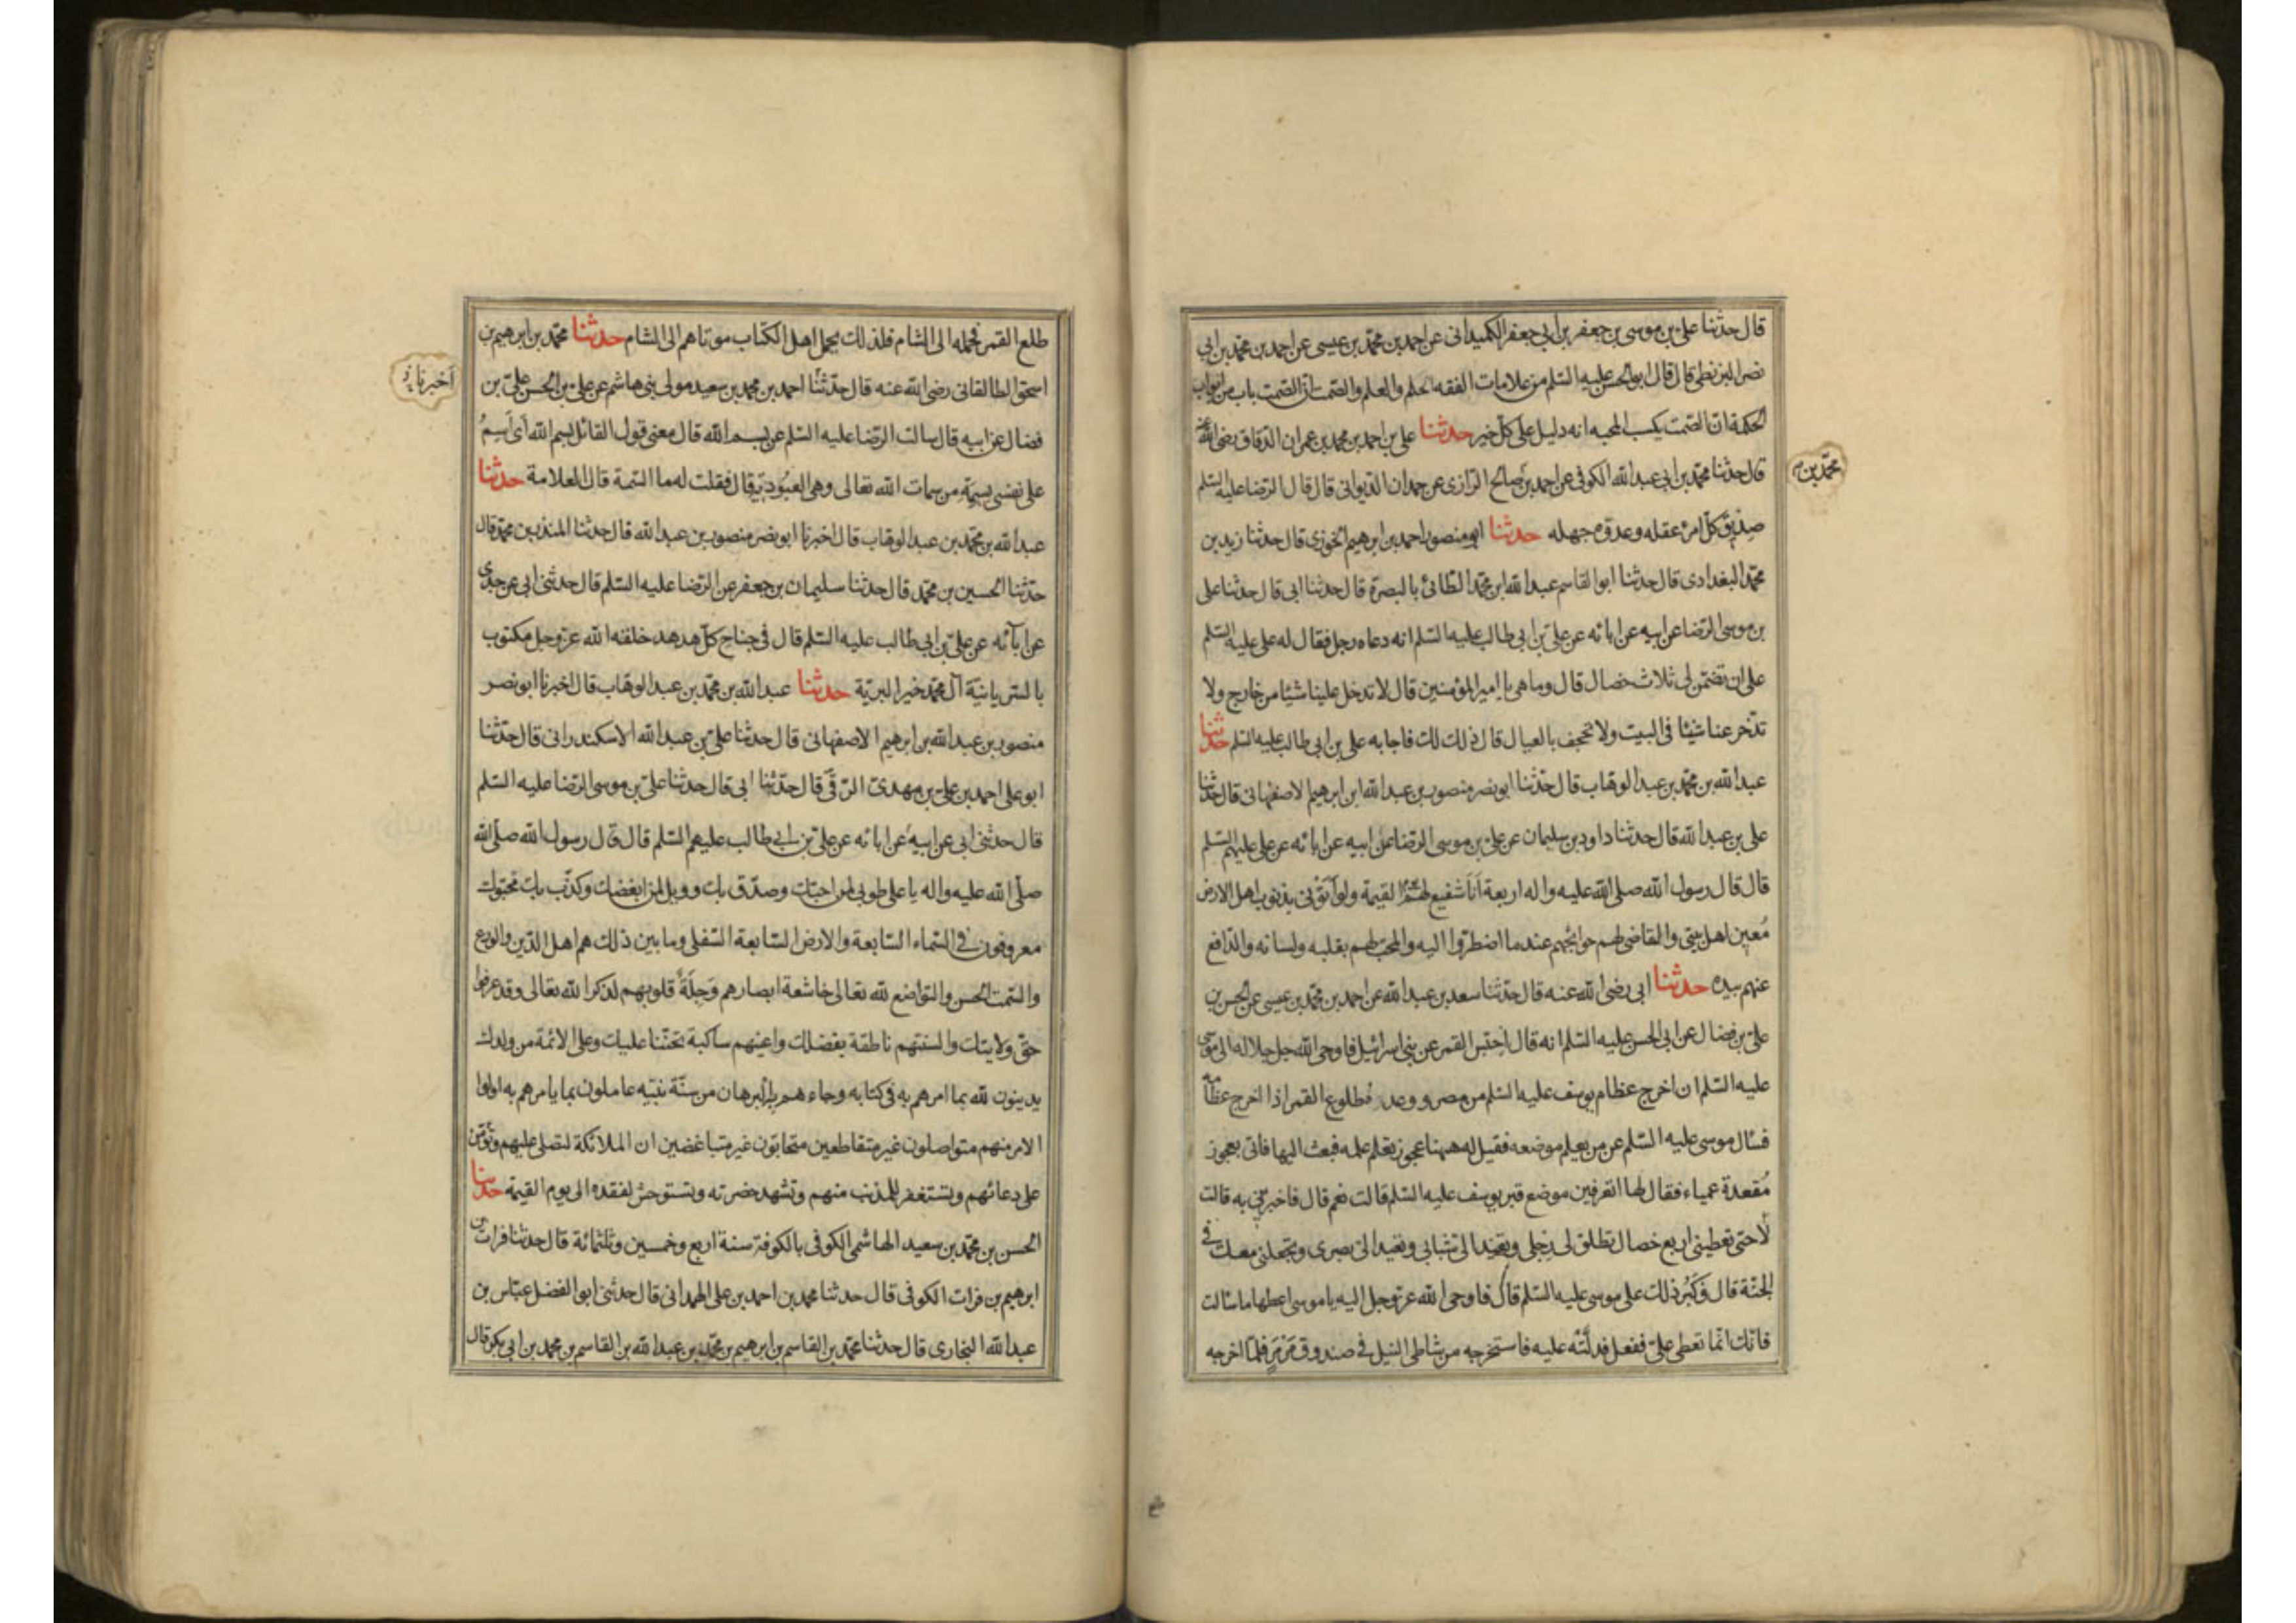 قال حدثنا على بن موسى بن جعفر بن ابي جعفر الكميدانى عن احمد بن محمّد بن عيسى عن احمد بن محمّد بن ابي
نصر البزنطى قال قال ابو الحسن عليه السّلم من علامات الفقه الحلم والعلم والصّمت انّ الصّمت باب من ابواب
الحكمة انّ الصّمت يكسب المحبه انه دليل على كلّ خير حدثنا على بن احمد بن محمد بن عمران الدّقاق رضى الله عنه
محمّد بن
قال حدثنا محمّد بن ابى عبد الله الكوفى عن احمد بن صالح الرّازى عن حمدان الدّيوانى قال قال الرّضا عليه السّلم
صديق كلّ امرء عقله وعدوّه جهله حدثنا ابو منصور احمد بن ابرهيم الخوزى قال حدثنا زيد بن
محمّد البغدادى قال حدثنا ابو القاسم عبد الله ابن محمّد الطّائى بالبصرة قال حدثنا ابى قال حدثنا على
بن موسى الرّضا عن ابيه عن ابائه عن على بن ابى طالب عليه السّلم انه دعاه رجل فقال له على عليه السّلم
على ان تضمن لى ثلاث خصال قال وما هى يا امير المؤمنين قال لا تدخل علينا شيئا من خارج ولا
تدّخر عنا شيئا فى البيت ولا تجحف بالعيال قال ذلك لك فاجابه على بن ابى طالب عليه السّلم حدثنا
عبد الله بن محمّد بن عبد الوهاب قال حدّثنا ابو نصر منصور بن عبد الله ابن ابرهيم الاصفهانى قال حدّثنا
على بن عبد الله قال حدثنا داود بن سليمان عن على بن موسى الرّضا عن ابيه عن ابائه عن على عليهم السّلم
قال قال رسول الله صلى الله عليه واله اربعة انا شفيع لهم يوم القيمة ولو اتونى بذنوب اهل الارض
مُعين اهل بيتى والقاضى لهم حوائجهم عند ما اضطرّوا اليه والمحبّ لهم بقلبه ولسانه والدّافع
عنهم بيده حدثنا ابى رضى الله عنه قال حدّثنا سعد بن عبد الله عن احمد بن محمّد بن عيسى عن الحسن بن
علىّ بن فضال عن ابى الحسن عليه السّلم انه قال احتبس القمر عن بنى اسرائيل فاوحى الله جل جلاله الى موسى
عليه السّلم ان اخرج عظام يوسف عليه السّلم من مصر ووعده طلوع القمر اذا اخرج عظامه
فسال موسى عليه السّلم عن من يعلم موضعه فقيل له ههنا عجوز تعلم علمه فبعث اليها فاتى بعجوز
مُقعدة عمياء فقال لها اتعرفين موضع قبر يوسف عليه السّلم قالت نعم قال فاخبرينى به قالت
لا حتى تعطينى اربع خصال تطلق لى رجلى وتعيد الىّ شبابى وتعيد الىّ بصرى وتجعلنى معك فى
الجنّة قال فكَبُر ذلك على موسى عليه السّلم قال فاوحى الله عزّ وجل اليه يا موسى اعطها ما سالت
فانّك انّما تعطى علىّ ففعل فدلّته عليه فاستخرجه من شاطى النيل فى صندوق مَرمَر فلمّا اخرجه
طلع القمر فحمله الى الشام فلذلك يحمل اهل الكتاب موتاهم الى الشام حدثنا محمّد بن ابرهيم بن
اخبرنا
اسحق الطالقانى رضى الله عنه قال حدّثنا احمد بن محمد بن سعيد مولى بنى هاشم عن على بن الحسن على بن
فضال عن ابيه قال سالت الرّضا عليه السّلم عن بسم الله قال معنى قول القائل بسم الله اى اَسِمُ
على نفسى بسِمَةٍ من سمات الله تعالى وهى العبُوديّة قال فقلت له ما السّمة قال العلامة حدثنا
عبد الله بن محمّد بن عبد الوهاب قال اخبرنا ابو نصر منصور بن عبد الله قال حدثنا المنذر بن محمّد قال
حدّثنا الحسين بن محمّد قال حدثنا سليمان بن جعفر عن الرّضا عليه السّلم قال حدثنى ابى عن جدى
عن آبائه عن علىّ بن ابى طالب عليه السّلم قال فى جناح كلّ هدهد خلقه الله عزّ وجل مكتوب
بالسّريانيّة آل محمّد خير البريّة حدثنا عبد الله بن محمّد بن عبد الوهاب قال اخبرنا ابو نصر
منصور بن عبد الله بن ابرهيم الاصفهانى قال حدثنا علىّ بن عبد الله الاسكندرانى قال حدّثنا
ابو على احمد بن على بن مهدىّ الرّقّى قال حدّثنا ابى قال حدثنا علىّ بن موسى الرّضا عليه السّلم
قال حدثنى ابى عن ابيه عن ابائه عن علىّ بن ابى طالب عليهم السّلم قال قال رسول الله صلّى الله
صلّى الله عليه واله يا على طوبى لمن احبّك وصدّق بك وويل لمن ابغضك وكذّب بك محبّوك
معروفون فى السّماء السّابعة والارض السّابعة السّفلى وما بين ذلك هم اهل الدّين والورع
والسّمت الحسن والتواضع لله تعالى خاشعة ابصارهم وَجِلَةٌ قلوبهم لذكر الله تعالى وقد عرفوا
حقّ ولايتك والسنتهم ناطقة بفضلك واعينهم ساكبة تحنّنا عليك وعلى الائمّة من ولدك
يدينون لله بما امرهم به فى كتابه وجاءهم به البرهان من سنّة نبيّه عاملون بما يامرهم به اولوا
الامر منهم متواصلون غير متقاطعين متحابّون غير متباغضين ان الملائكة لتصلى عليهم وتؤمّن
على دعائهم وتستغفر للمذنب منهم وتشهد حضرته وتستوحش لفقده الى يوم القيمة حدثنا
الحسن بن محمّد بن سعيد الهاشمى الكوفى بالكوفة سنة اربع وخمسين وثلثمائة قال حدثنا فرات بن
ابرهيم بن فرات الكوفى قال حدثنا محمد بن احمد بن على الهمدانى قال حدثنى ابو الفضل عبّاس بن
عبد الله البخارى قال حدثنا محمّد بن القاسم بن ابرهيم بن محمّد بن عبد الله بن القاسم بن محمد بن ابى بكر قال